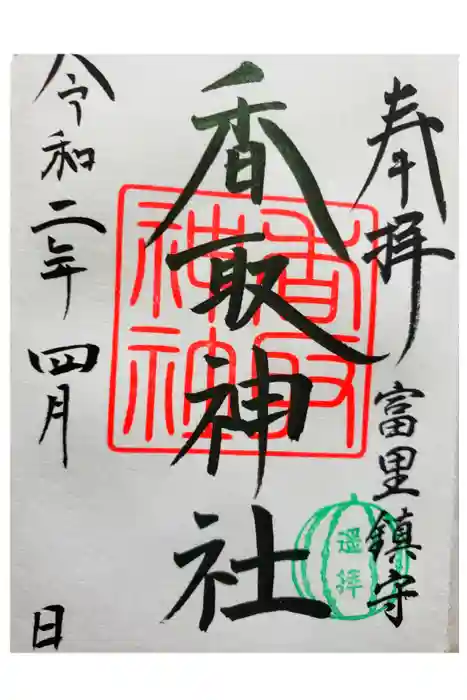 奉拝
富里鎮守
香取神社
香取神社
遥拝
令和二年 四月 日